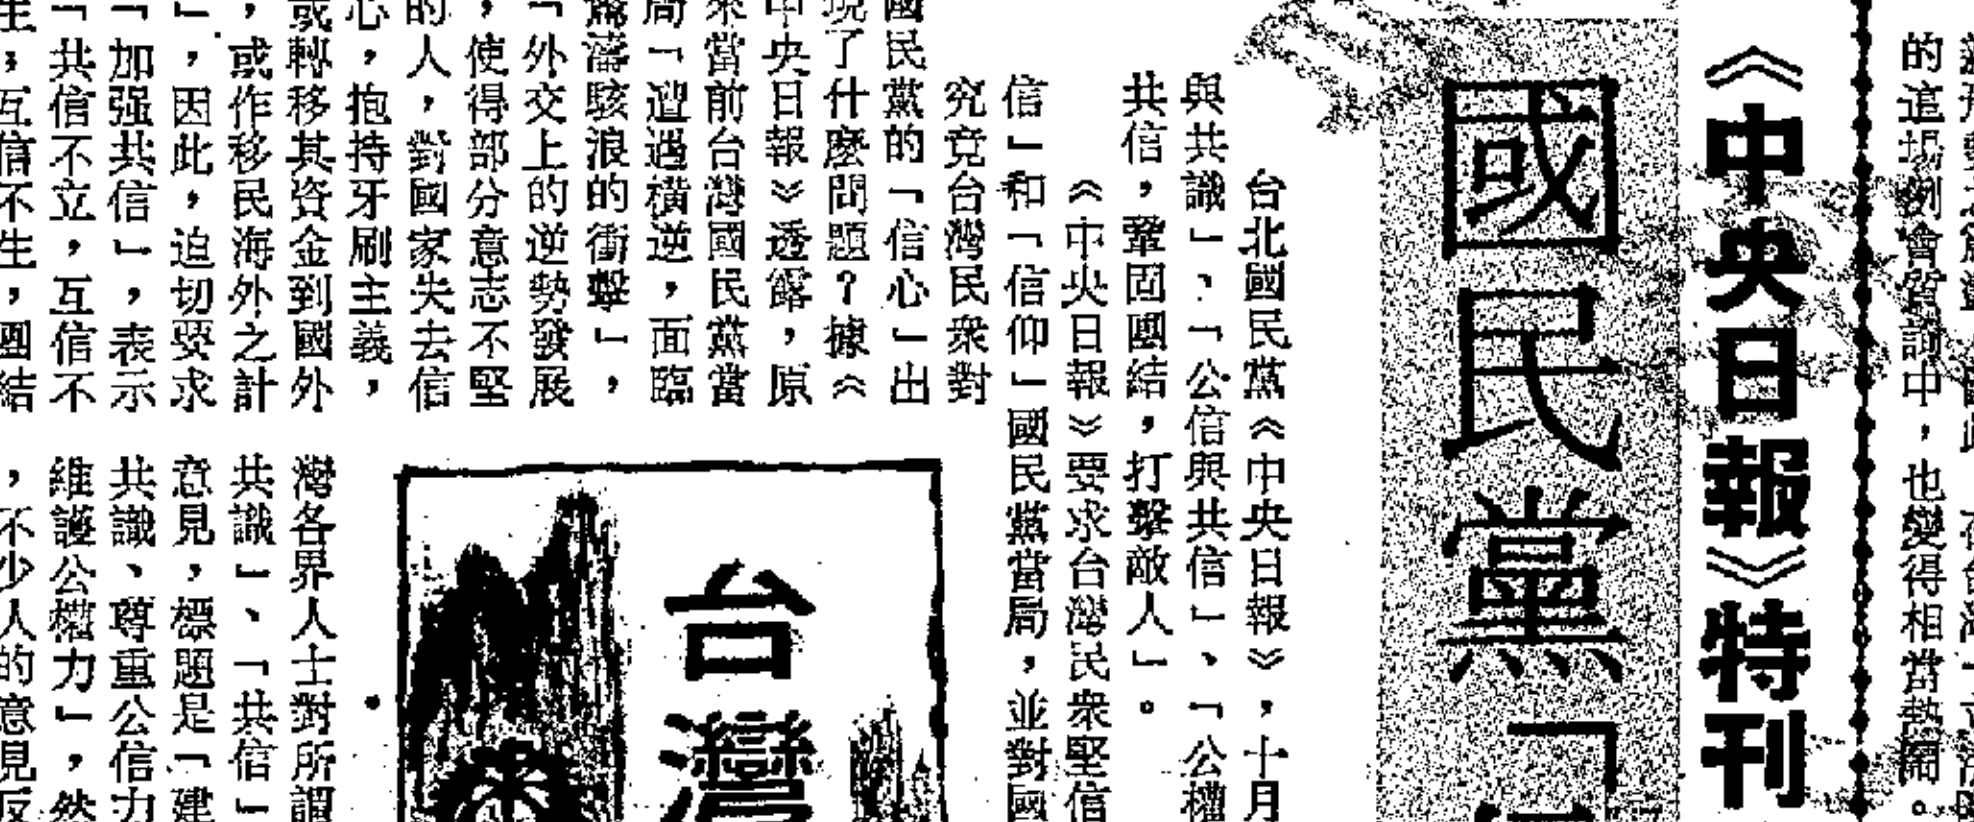 的這場例會質詢中，也變得相當熱鬧。
《中央日報》特刊
國民黨「
台北國民黨《中央日報》，十月
與共識」、「公信與共信」、「公權
共信，鞏固團結，打擊敵人」。
《中央日報》要求台灣民衆堅信
信」和「信仰」國民黨當局，並對國
究竟台灣民衆對
國民黨的「信心」出
現了什麼問題？據《
中央日報》透露，原
來當前台灣國民黨當
局「遭遇橫逆，面臨
驚濤駭浪的衝擊」，
「外交上的逆勢發展
，使得部分意志不堅
的人，對國家失去信
心，抱持牙刷主義，
或轉移其資金到國外
，或作移民海外之計
」，因此，迫切要求
「加强共信」，表示
「共信不立，互信不
生，互信不生，團結
台灣
灣各界人士對所謂
共識」、「共信」
意見，標題是「建
共識、尊重公信力
維護公權力」，然
，不少人的意見反